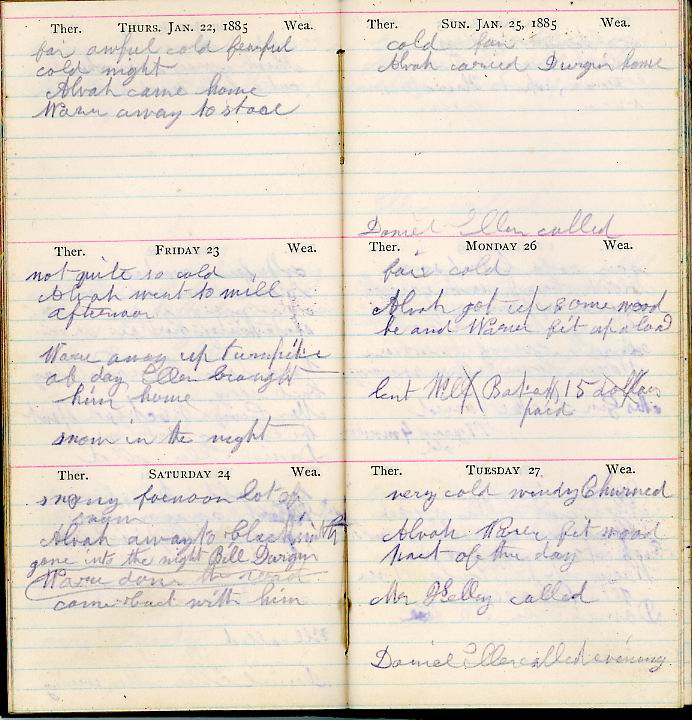 Ther. THURS. JAN. 22, 1885 Wea.
fair awful cold fearful
cold night
Alvah came home
Warre away to store
Ther. FRIDAY 23 Wea.
not quite so cold
Alvah went to mill
afternoon
Warre away up turnpike
all day Ellen brought
him home
snow in the night
Ther. SATURDAY 24 Wea.
snowy forenoon lot of
Alvah away to blacksmith
gone into the night Bill Durgin
Warre down the road
came back with him
Ther. SUN. JAN. 25, 1885 Wea.
cold fair
Alvah carried Durgin home
Daniel Ellen called
Ther. MONDAY 26 Wea.
fair cold
Alvah got up some wood
he and Warre fit up a load
lent 15 dollars
paid
Ther. TUESDAY 27 Wea.
very cold windy Churned
Alvah Warre fit wood
part of the day
Mr called
Daniel Ellen called evening